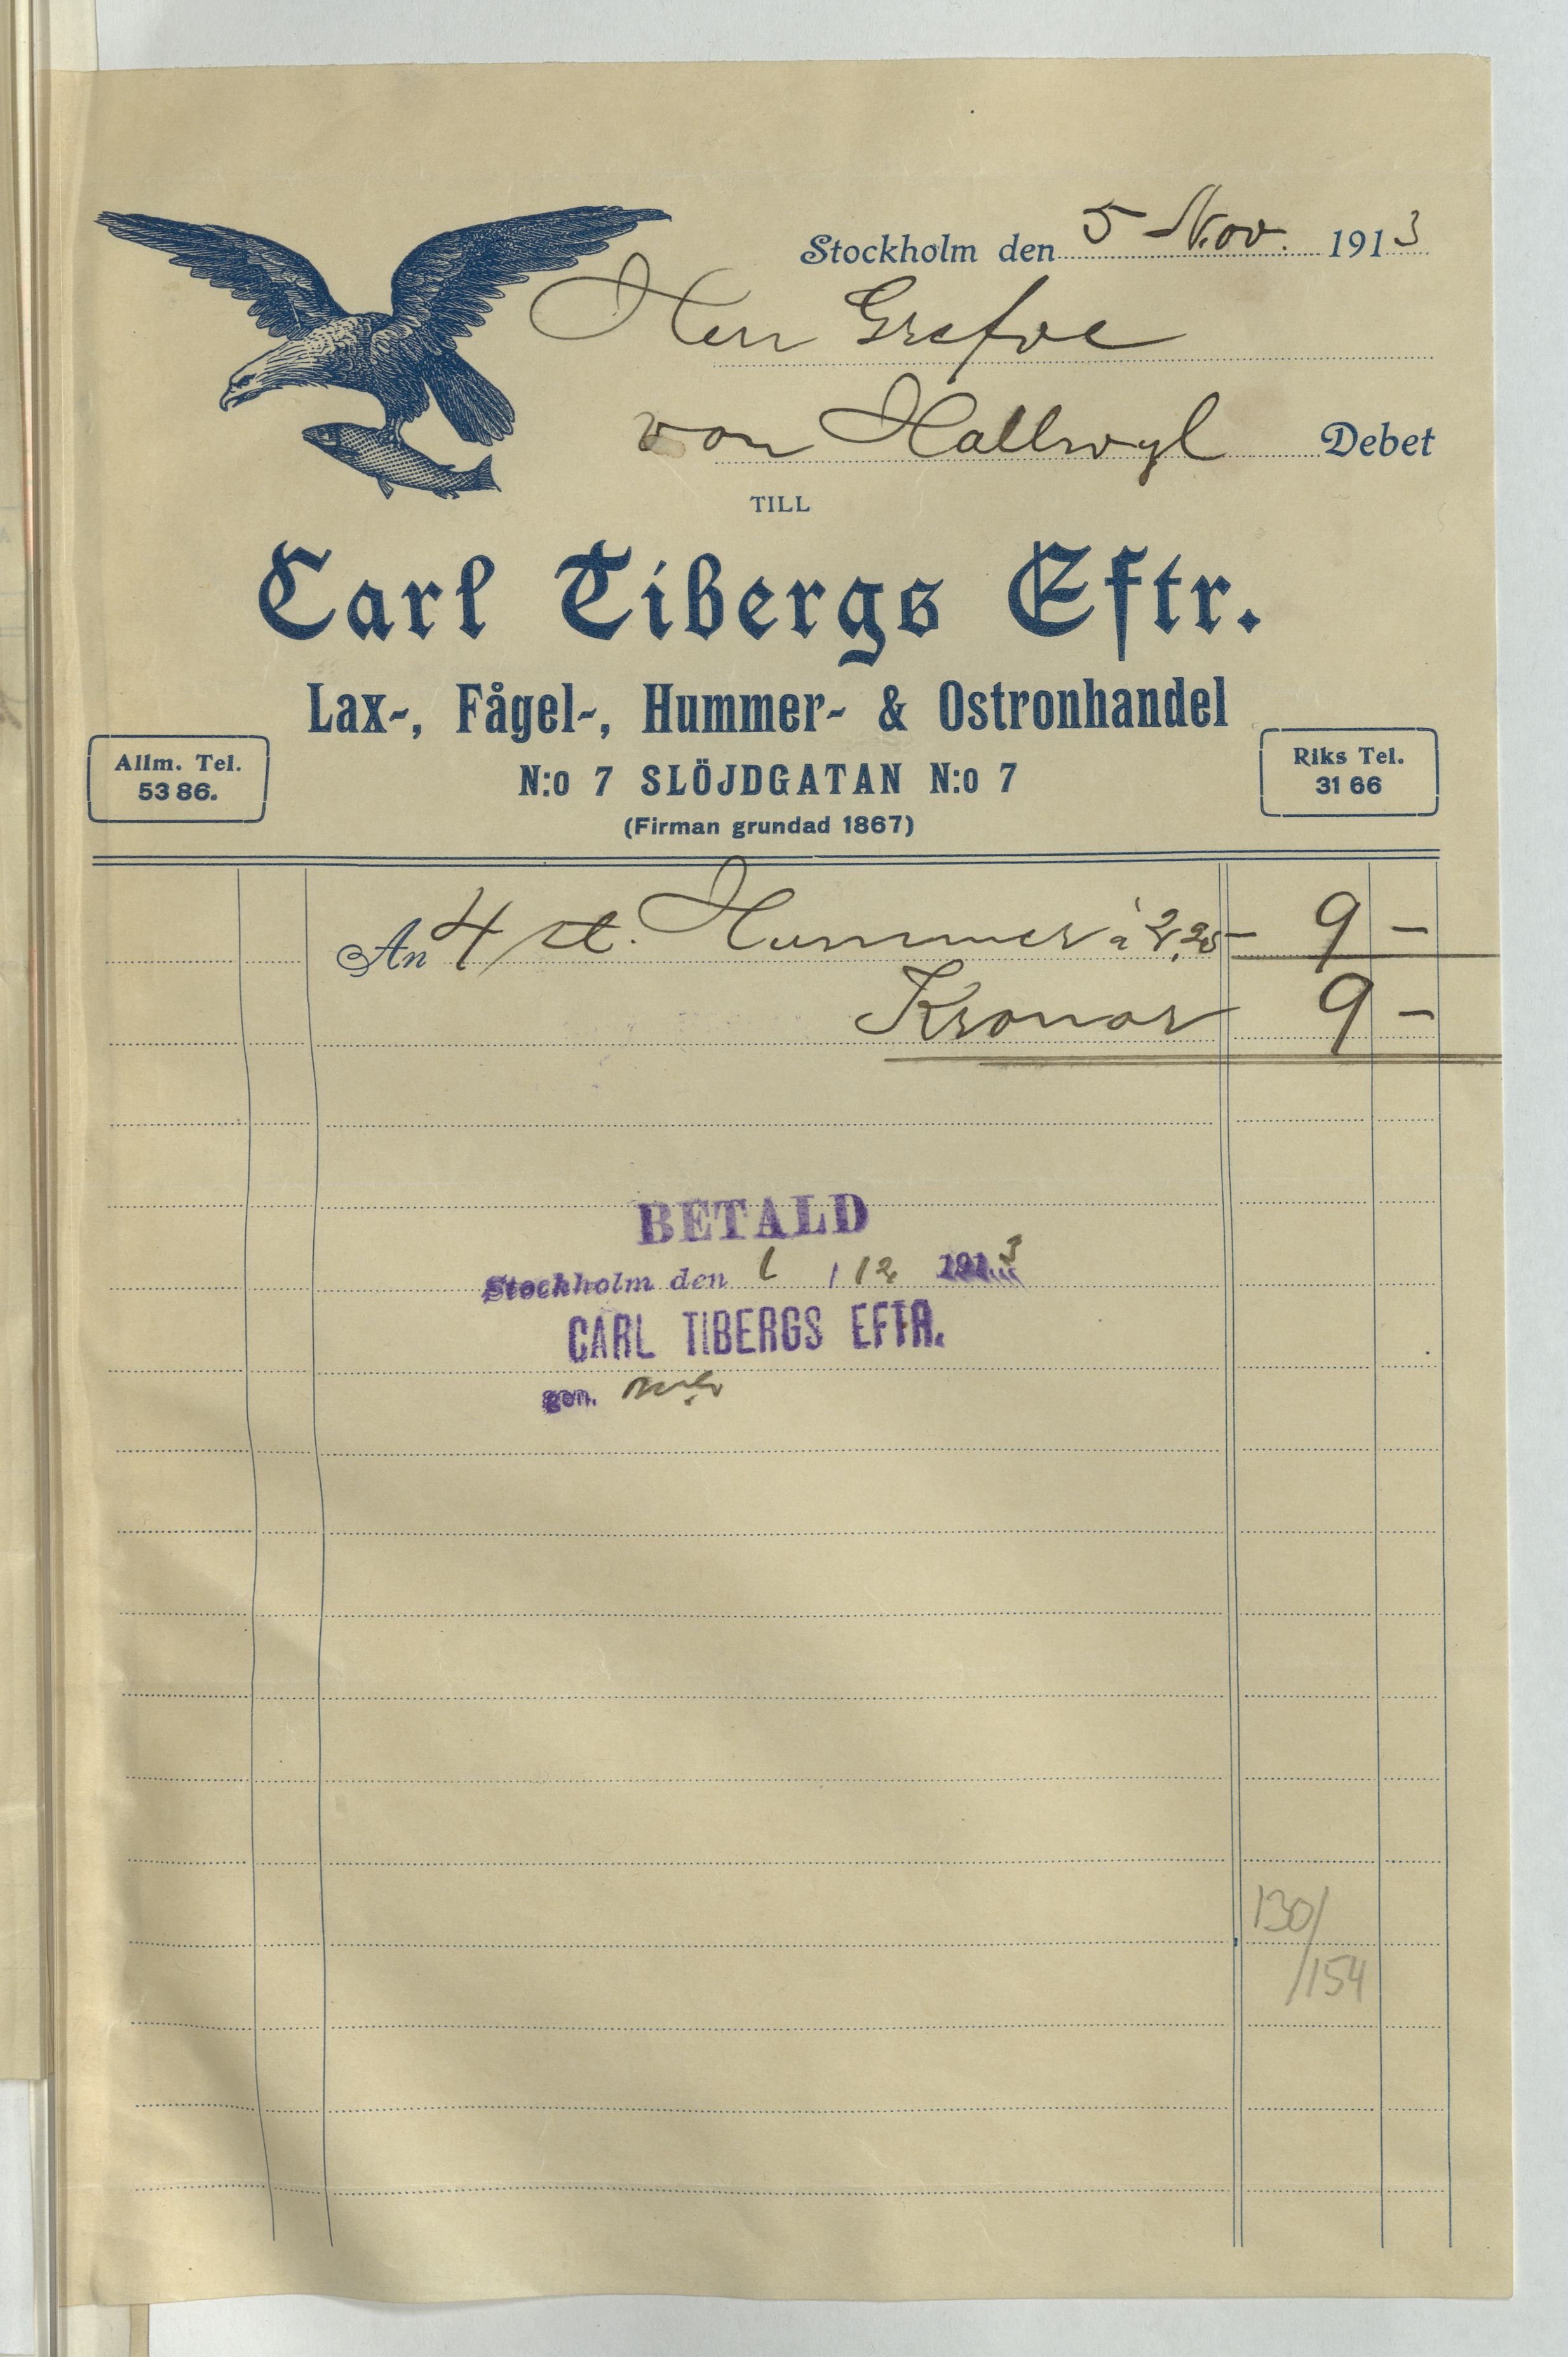 Stockholm den 5 Nov. 1913
Herr Grefve
von Hallwyl Debet
TILL
Carl Tibergs Eftr.
Lax-, Fågel-, Hummer- & Ostronhandel
Allm. Tel.
53 86.
N:o 7 SLÖJDGATAN N:o 7
Riks Tel.
31 66
(Firman grundad 1867)
An 4 st. Hummer à 2,25 – 9 –
Kronor 9 –
BETALD
Stockholm den 1 / 12 1913
CARL TIBERGS EFTR.
gen.
130/
/154